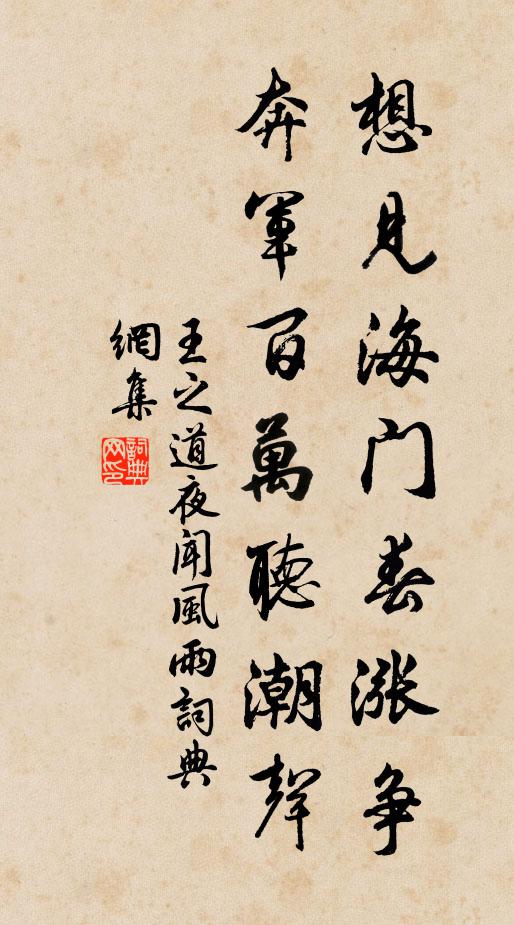 想見海門春漲爭
奔軍百萬聽潮聲
王之道夜聞風雨詞典
網集
詞典网印